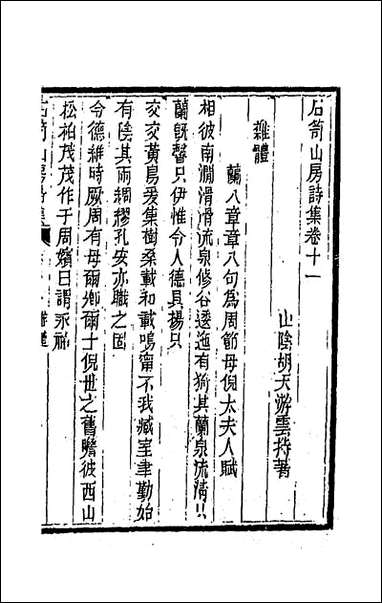 石笥山房詩集卷十一
山陰胡天游雲持著
雜體
蘭八章章八句為周節母倪太夫人賦
相彼南澗滑滑流泉修谷邐迤有猗其蘭泉流清只
蘭旣馨只伊惟令人德具揚只
交交黃鳥爰集樹桑載和載鳴甯不我臧室聿勤始
有陰其雨綢繆孔安亦職之固
令德維時厥周有母爾鄉爾士倪世之舊瞻彼西山
松柏茂茂作于周嬪曰謂永
石笥山房詩集